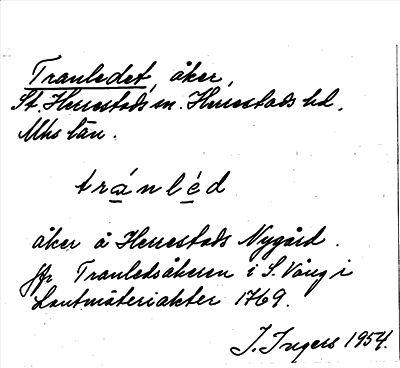 Tranledet, åker,
St. Herrestads sn. Herrestads hd.
Mhs län.
tránléd
åker å Herrestads Nygård.
jfr Tranledsåkeren i S. Vång i
Lantmäteriakter 1769.
I. Ingers 1954.